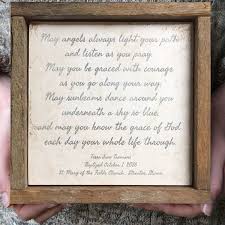 May angels always light your path
and listen as you pray.
May you be graced with courage
as you go along your way.
May sunbeams dance around you
underneath a sky so blue,
and may you know the grace of God
each day your whole life through.
Baptized October 1, 2016
St. Mary of the Fields Church,